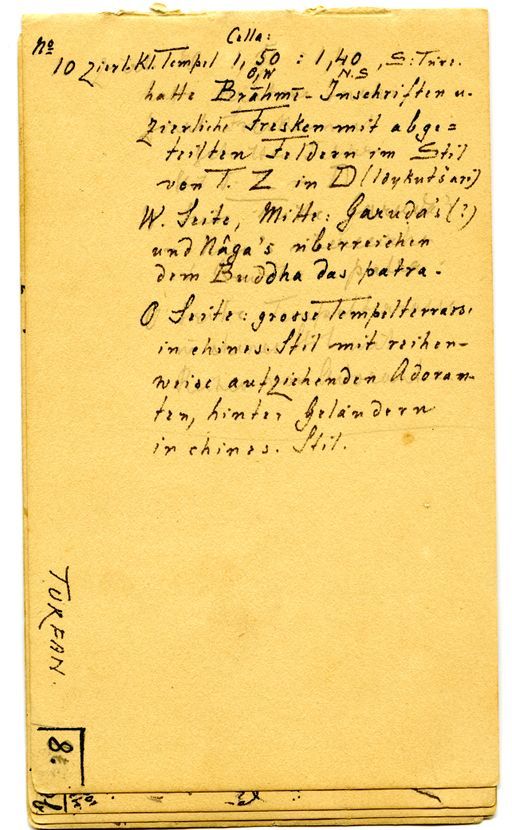 Cella:
No
10 zierl. Kl. Tempel 1,50 : 1,40, S: Türe.
O, W N. S
hatte Brāhmī-Inschriften u.
zierliche Fresken mit abge=
teilten Feldern im Stil
von T. Z in D (Idykutšari)
W. Seite, Mitte: Garuda's (?)
und Nâga's überreichen
dem Buddha das patra.
O Seite: grosse Tempelterrass.
in chines. Stil mit reihen-
weise aufziehenden Adoran-
ten, hinter Geländern
in chines. Stil.
TURFAN.
8.